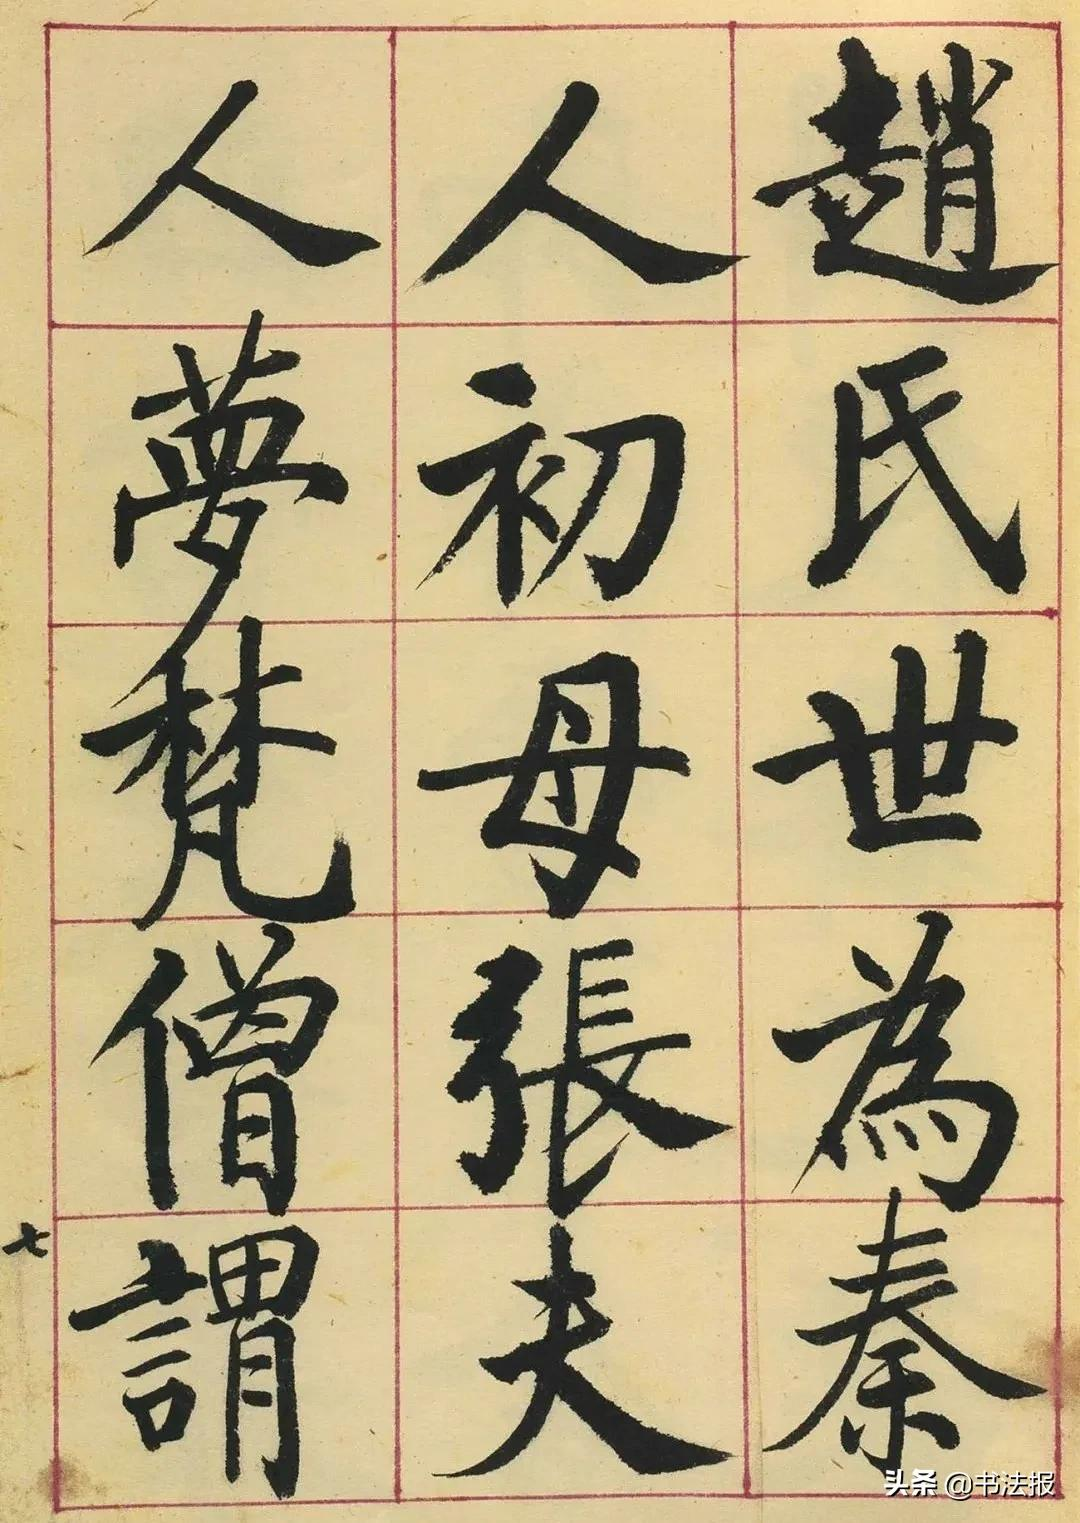 趙氏世為秦
人初母張夫
人夢梵僧謂
七
头条 @书法报